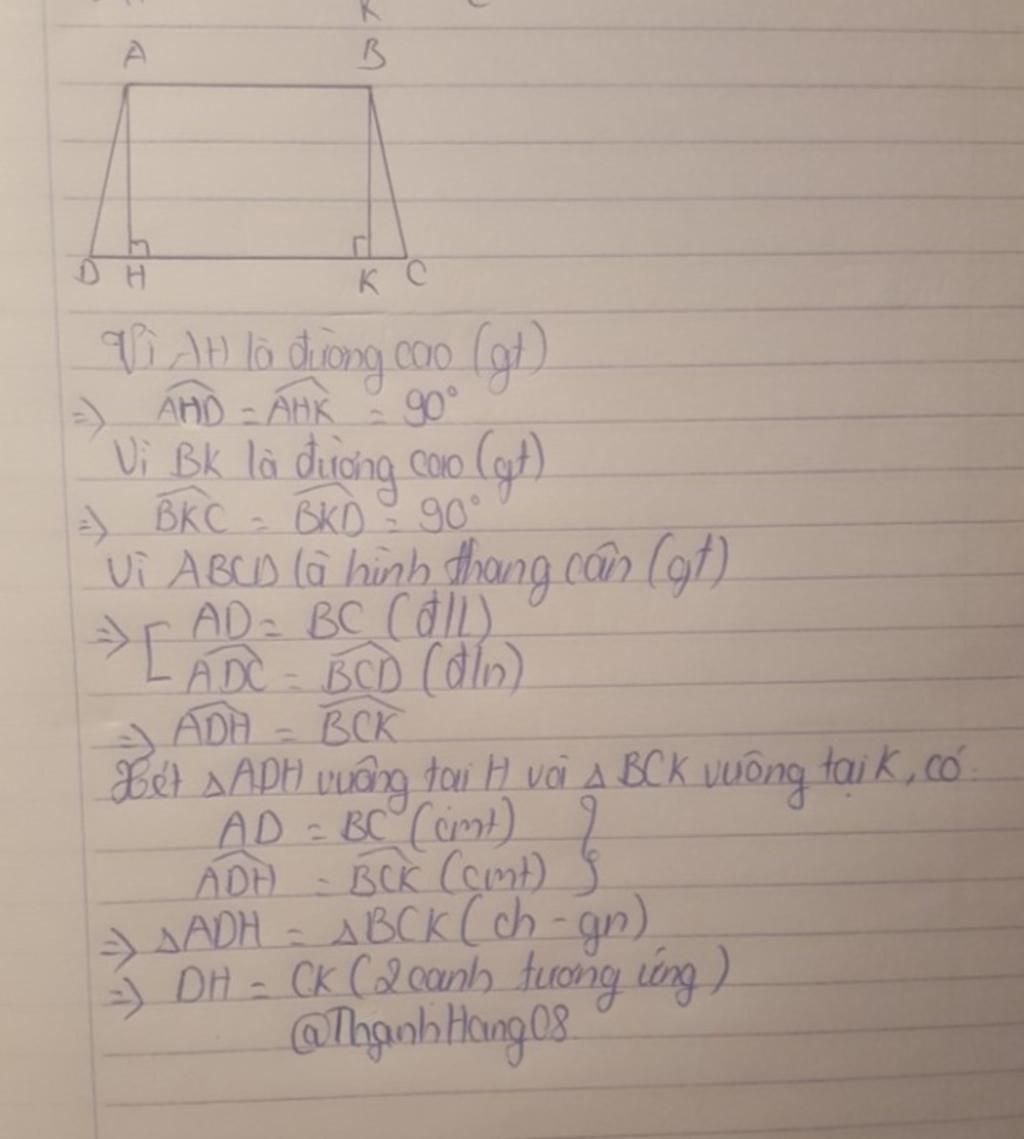 K
A B
D H K C
Vì AH là đường cao (gt)
=> AHD = AHK = 90°
Vì BK là đường cao (gt)
=> BKC = BKD = 90°
Vì ABCD là hình thang cân (gt)
=> [ AD = BC (đ/l)
ADC = BCD (đ/n)
=> ADH = BCK
Xét △ADH vuông tại H và △BCK vuông tại K, có
AD = BC (cmt) }
ADH = BCK (cmt)
=> △ADH = △BCK (ch - gn)
=> DH = CK (2 cạnh tương ứng)
@ThanhHang08